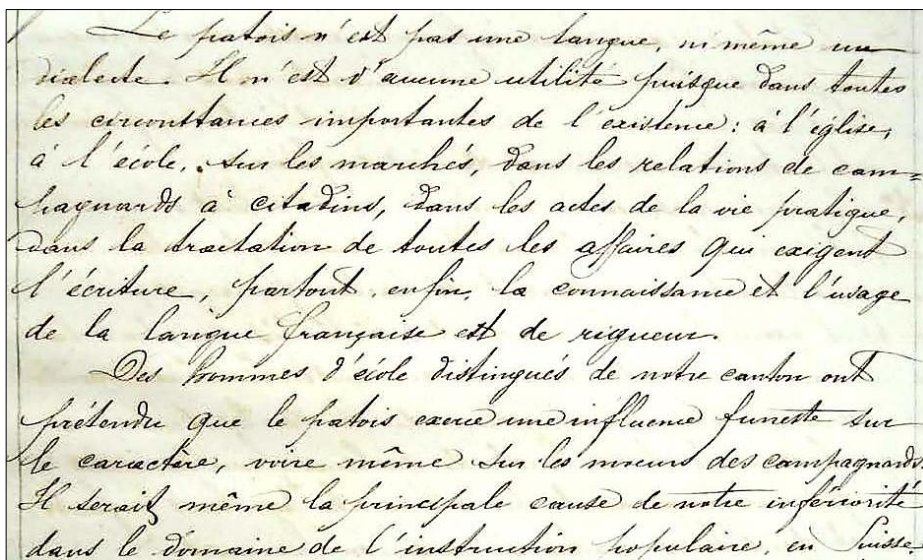 Le patois n'est pas une langue, ni même un
dialecte. Il n'est d'aucune utilité puisque dans toutes
les circonstances importantes de l'existence: à l'église,
à l'école, sur les marchés, dans les relations de cam=
pagnards à citadins, dans les actes de la vie pratique,
dans la tractation de toutes les affaires qui exigent
l'écriture, partout, enfin, la connaissance et l'usage
de la langue française est de rigueur.
Des hommes d'école distingués de notre canton ont
prétendu que le patois exerce une influence funeste sur
le caractère, voire même sur les moeurs des campagnards
Il serait même la principale cause de notre infériorité
dans le domaine de l'instruction populaire en Suisse